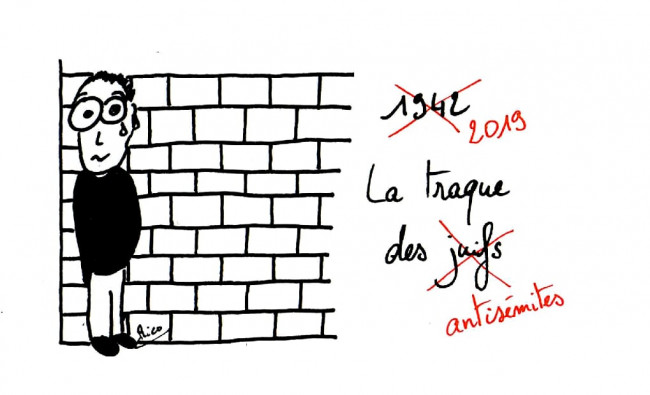 1942
2019
La traque
des juifs
antisémites
Rico